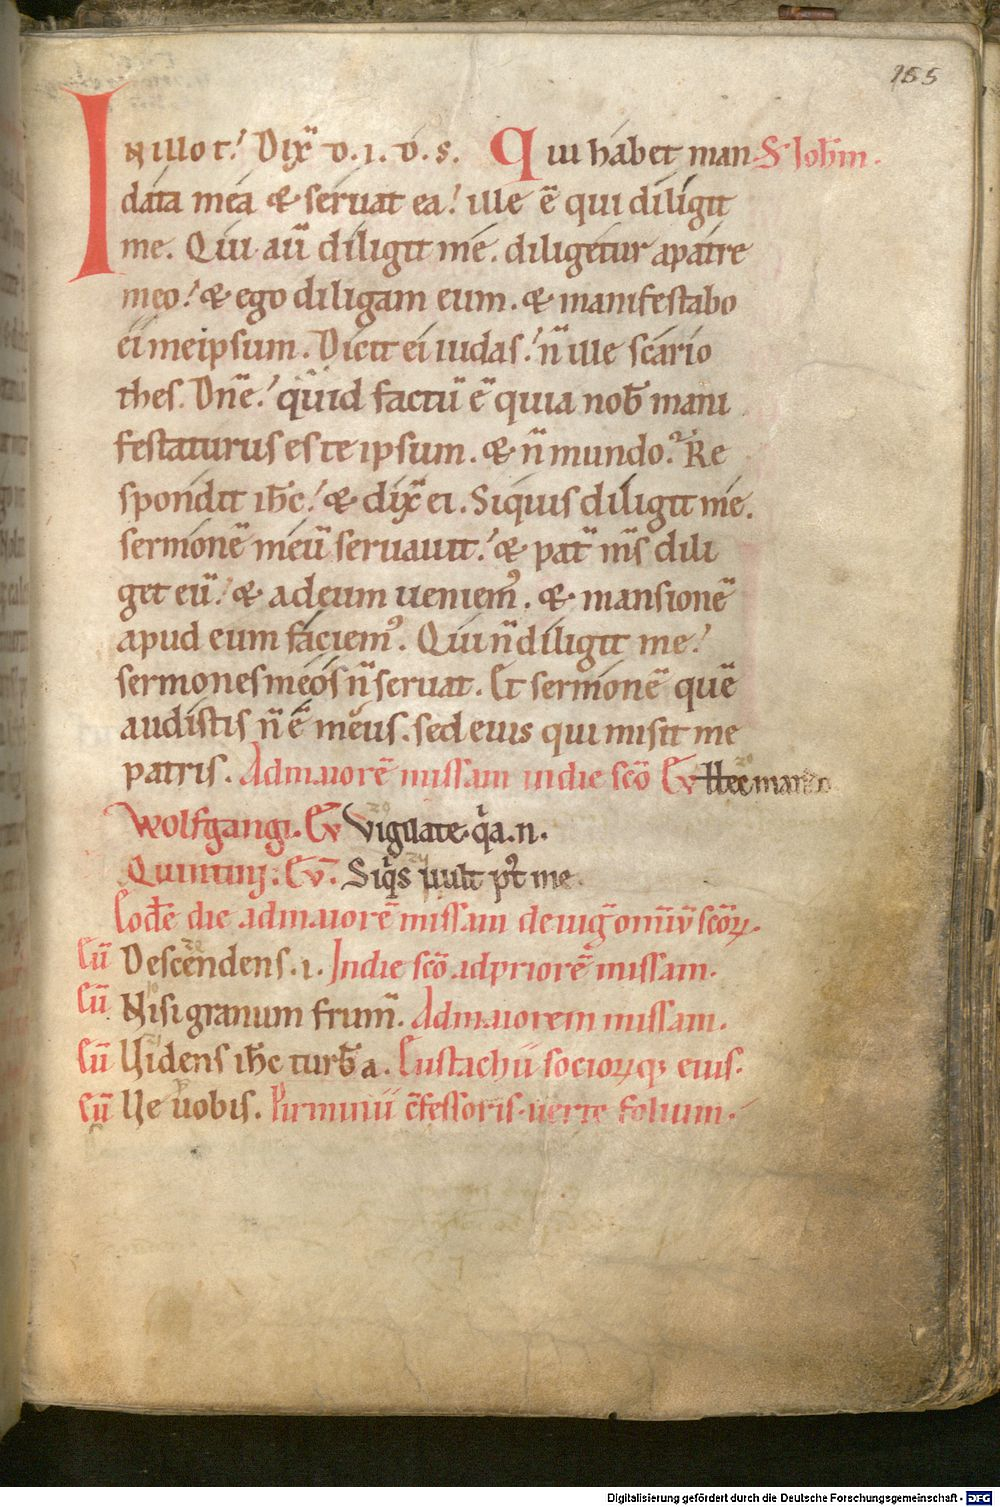 155
IN illo t. Dix̄ d. i. d. s. Qui habet man S. Ioh̄m.
data mea & seruat ea. ille ē qui diligit
me. Qui aū diligit me. diligetur apatre
meo. & ego diligam eum. & manifestabo
ei meipsum. Dicit ei iudas. n̄ ille scario
thes. Dn̄e. quid factū ē quia nob̄ mani
festaturus es te ipsum. & n̄ mundo. Re
spondit ih̄c. & dix̄ ei. Siquis diligit me.
sermonē meū seruauit. & pat̄ m̄s dili
get eū. & adeum ueniem᾿. & mansionē
apud eum faciem᾿. Qui n̄ diligit me.
sermones meos n̄ seruat. Et sermonē quē
audistis n̄ ē meus. sed eius qui misit me
patris. Admaiorē missam indie sc̄o Eṽ Hec mando
Wolfgangi. Eṽ Vigilate. q̇a. n.
Quintini. Eṽ. Siq̇s uult p᾿t me.
Eodē die admaiorē missam de uig̃ om̄iū sc̄oꝝ.
Eū Descendens. i. Indie sc̄o adpriorē missam.
Eū Nisi granum frum̄. Admaiorem missam.
Eū Uidens ih̄c turb̄ a. Eustachii socioꝝq; eius.
Eū Ue uobis. Pirminii c̄fessoris. uerte folium.
Digitalisierung gefördert durch die Deutsche Forschungsgemeinschaft - DFG